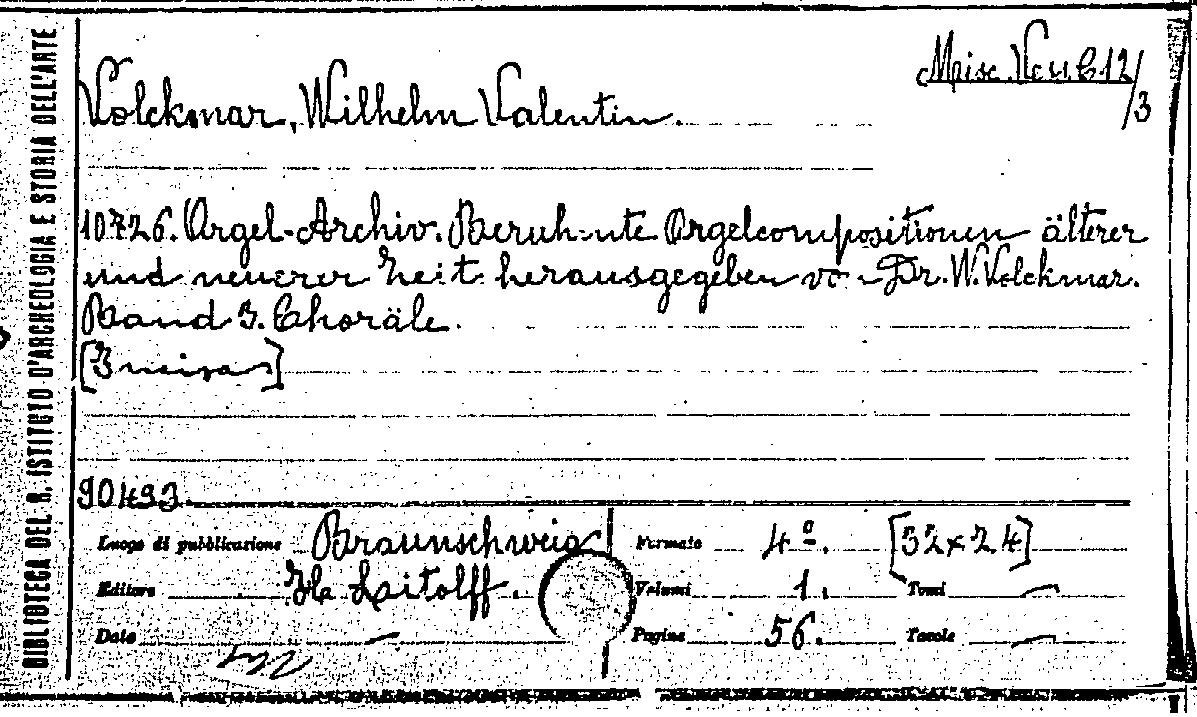 BIBLIOTECA DEL R. ISTITUTO D'ARCHEOLOGIA E STORIA DELL'ARTE
Misc. B12/3
Volckmar, Wilhelm Valentin.
10726. Orgel-Archiv. Beruhmte Orgelcompositionen älterer
und neuerer Zeit herausgegeben von Dr. W. Volckmar.
Band 3. Choräle.
[Musica]
90493.
Luogo di pubblicazione Braunschweig Formato 4º. [32x24]
Editore Litolff. Volumi 1. Tomi —
Data — Pagine 56. Tavole —